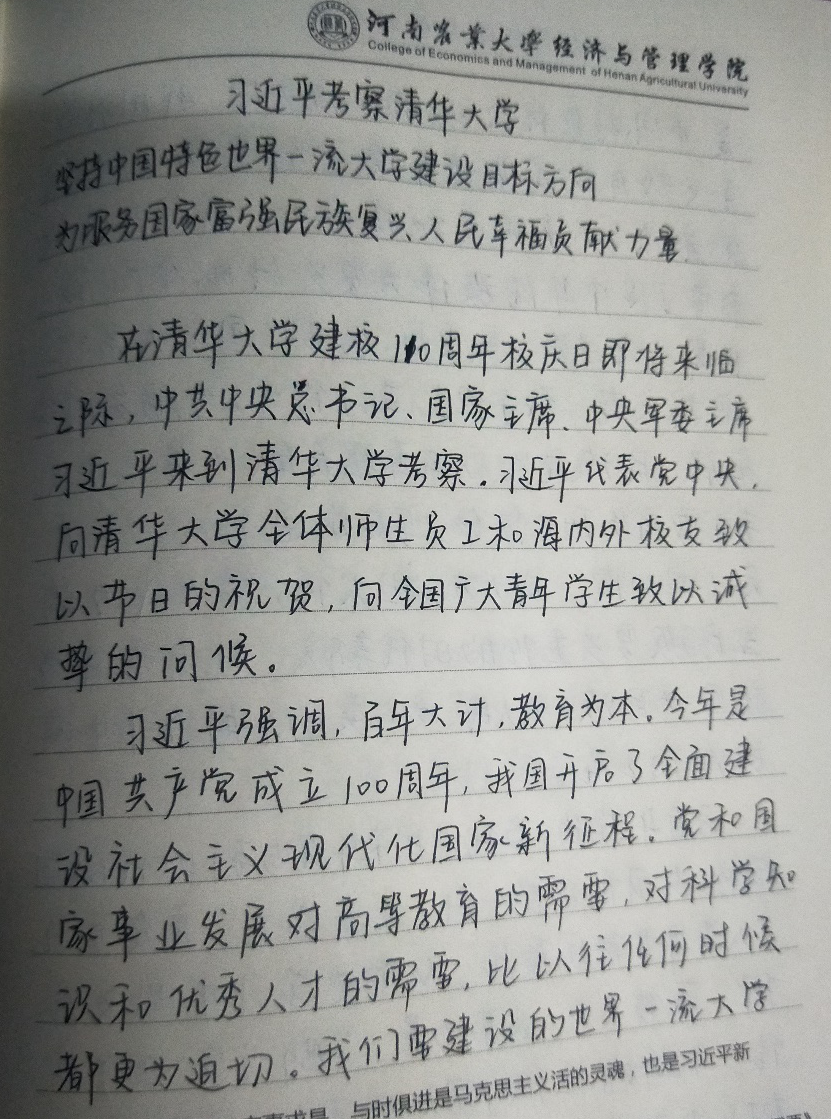 河南农业大学经济与管理学院
College of Economics and Management of Henan Agricultural University
习近平考察清华大学
坚持中国特色世界一流大学建设目标方向
为服务国家富强民族复兴人民幸福贡献力量
在清华大学建校110周年校庆日即将来临
之际，中共中央总书记、国家主席、中央军委主席
习近平来到清华大学考察。习近平代表党中央，
向清华大学全体师生员工和海内外校友致
以节日的祝贺，向全国广大青年学生致以诚
挚的问候。
习近平强调，百年大计，教育为本。今年是
中国共产党成立100周年，我国开启了全面建
设社会主义现代化国家新征程。党和国
家事业发展对高等教育的需要，对科学知
识和优秀人才的需要，比以往任何时候
都更为迫切。我们要建设的世界一流大学
与时俱进是马克思主义活的灵魂，也是习近平新